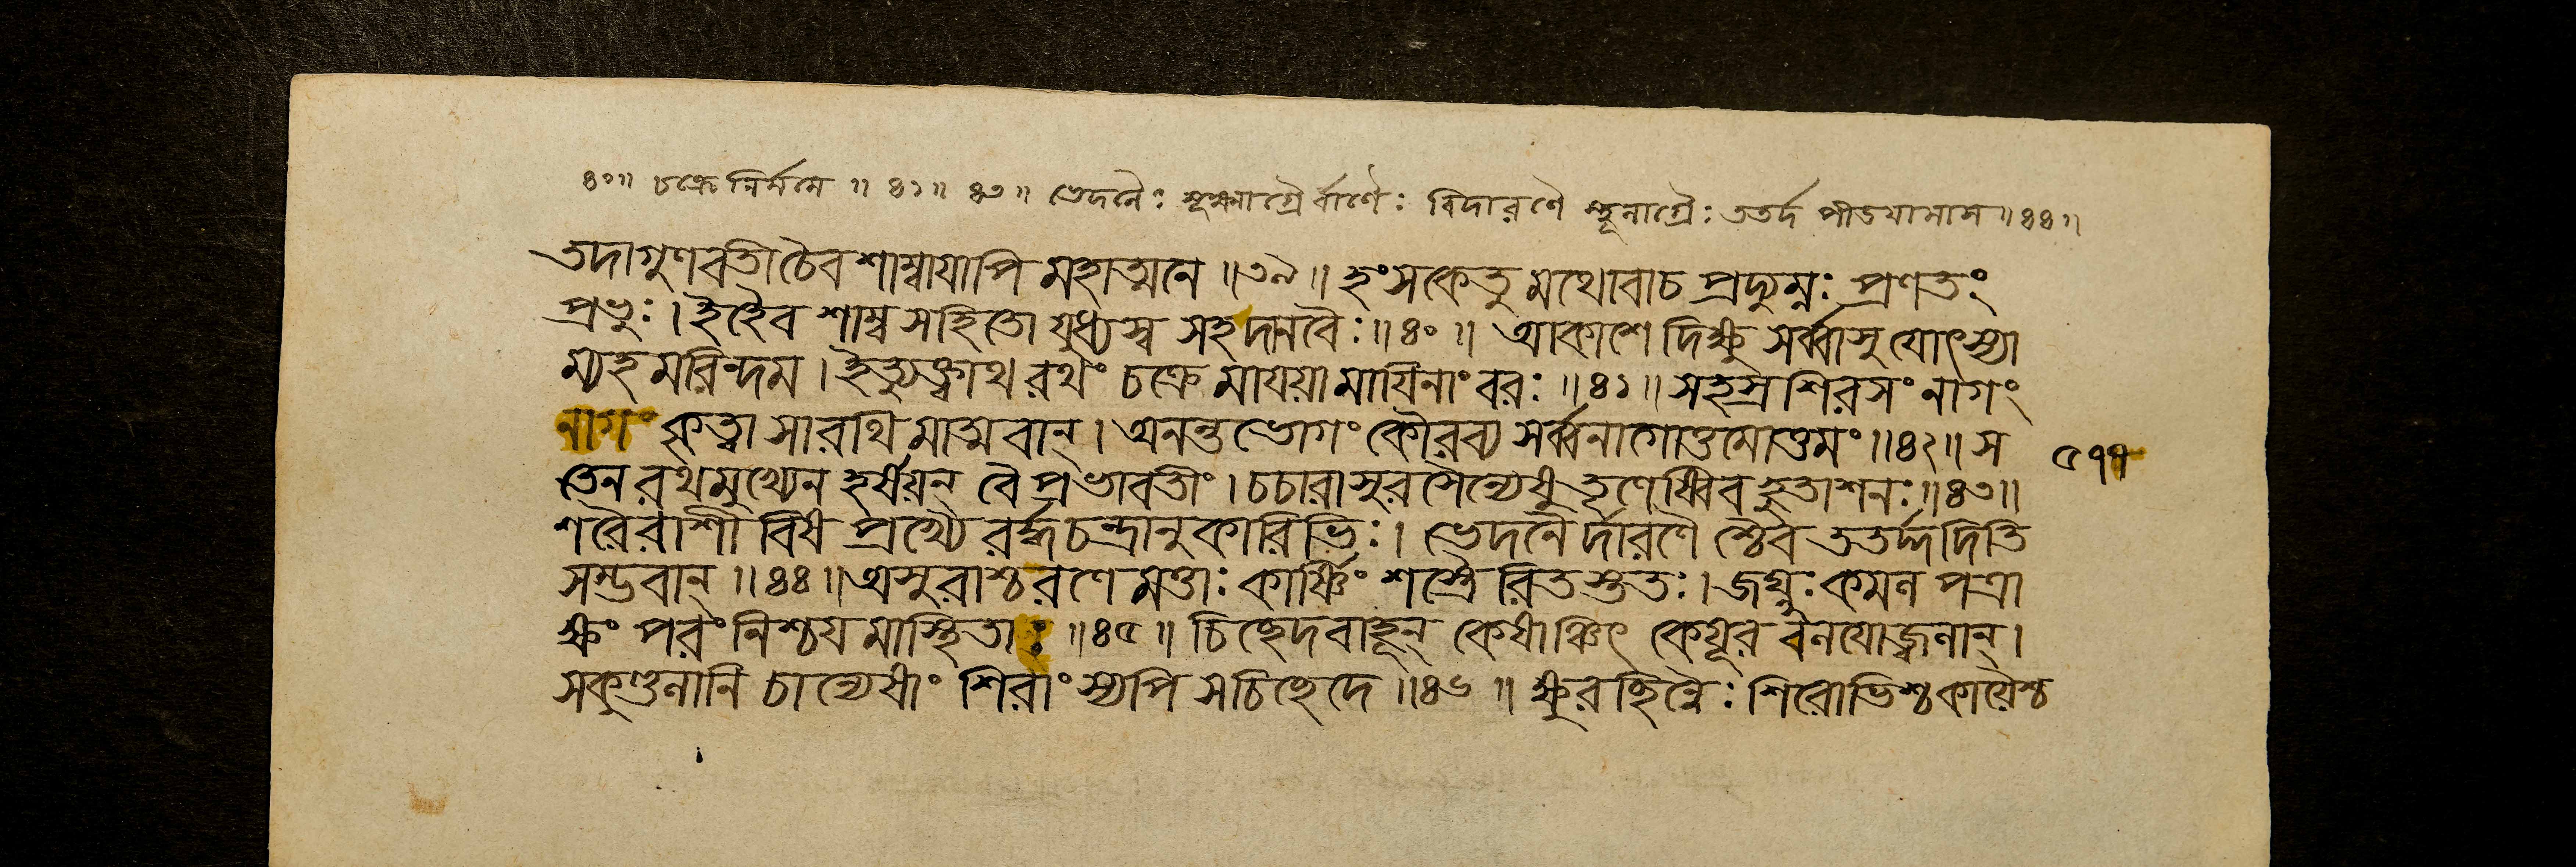 ৪০॥ চক্রে নির্মমে ॥ ৪১॥ ৪৩॥ ভেদনৈঃ সূক্ষ্মাগ্রৈর্বাণৈঃ বিদারণৈ স্থূলাগ্রৈঃ ততর্দ পীডযামাস॥৪৪॥
তদাগুণবতীচৈব শাম্বাযাপি মহাত্মনে ॥৩৯॥ হংসকেতু মথোবাচ প্রদ্যুম্নঃ প্রণতং
প্রভুঃ। ইহৈব শাম্ব সহিতো যুধ্যস্ব সহ দানবৈঃ॥৪০॥ আকাশে দিক্ষু সর্ব্বাসু যোৎস্যা
ম্যহ মরিন্দম। ইত্যুক্ত্বাথ রথং চক্রে মাযয়া মাযিনাং বরঃ ॥৪১॥ সহস্র শিরসং নাগং
নাগং কৃত্বা সারথি মাত্মবান্। অনন্ত ভোগং কৌরব্য সর্ব্বনাগোত্তমোত্তমং ॥৪২॥ স
তেন রথমুখ্যেন হর্ষয়ন্ বৈ প্রভাবতীং। চচারাসুরসৈন্যেষু তৃণেষ্বিব হুতাশনঃ॥৪৩॥
শরৈরাশী বিষ প্রখ্যৈ রর্দ্ধচন্দ্রানুকারিভিঃ। ভেদনৈর্দারণৈ শ্চৈব ততর্দ্দ দিতি
সম্ভবান্ ॥৪৪॥ অসুরাশ্চ রণে মত্তাঃ কার্ষ্ণিং শস্ত্রৈ রিতস্ততঃ। জঘ্নুঃ কমল পত্রা
ক্ষং পরং নিশ্চয মাস্থিতাঃ ॥৪৫॥ চিচ্ছেদ বাহূন্ কেষাঞ্চিৎ কেযূর বলযোজ্জ্বলান্।
সকুণ্ডলানি চান্যেষাং শিরাংস্যপি স চিচ্ছেদে ॥৪৬॥ ক্ষুরচ্ছিন্নৈঃ শিরোভিশ্চ কায়ৈশ্চ